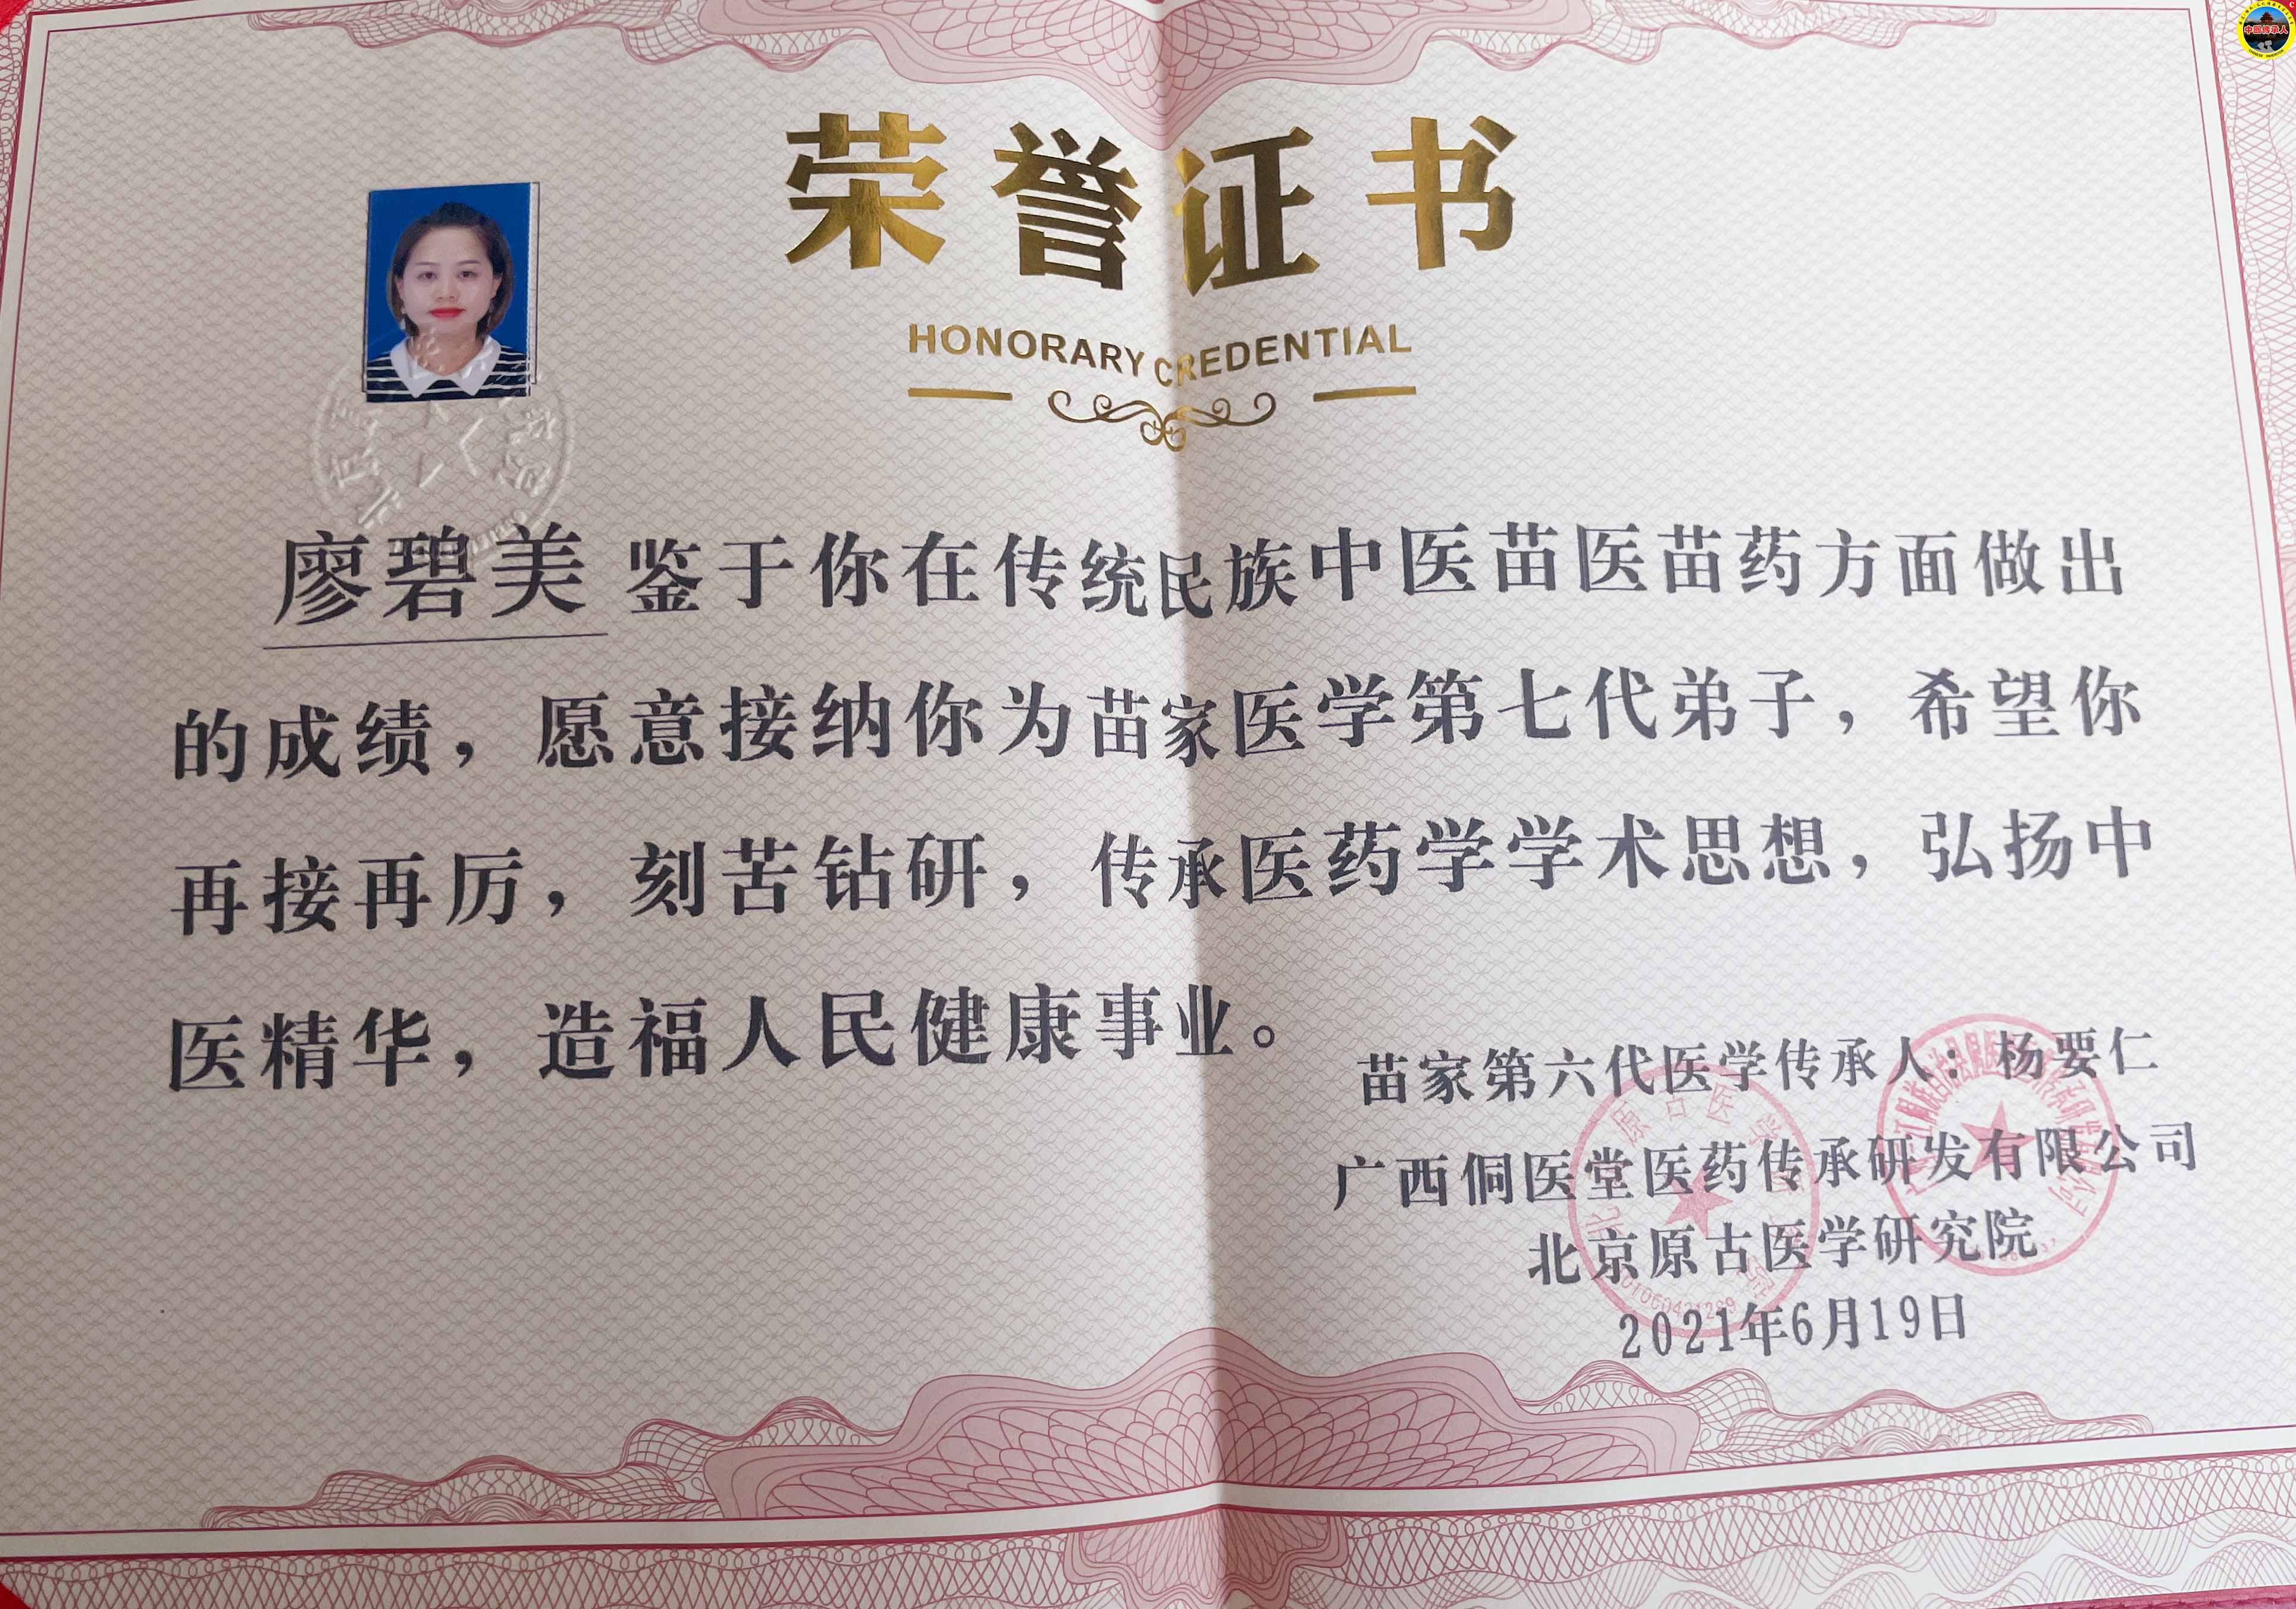 中医传承人
荣誉证书
HONORARY CREDENTIAL
廖碧美 鉴于你在传统民族中医苗医苗药方面做出
的成绩，愿意接纳你为苗家医学第七代弟子，希望你
再接再厉，刻苦钻研，传承医药学学术思想，弘扬中
医精华，造福人民健康事业。
苗家第六代医学传承人：杨要仁
广西侗医堂医药传承研发有限公司
北京原古医学研究院
2021年6月19日